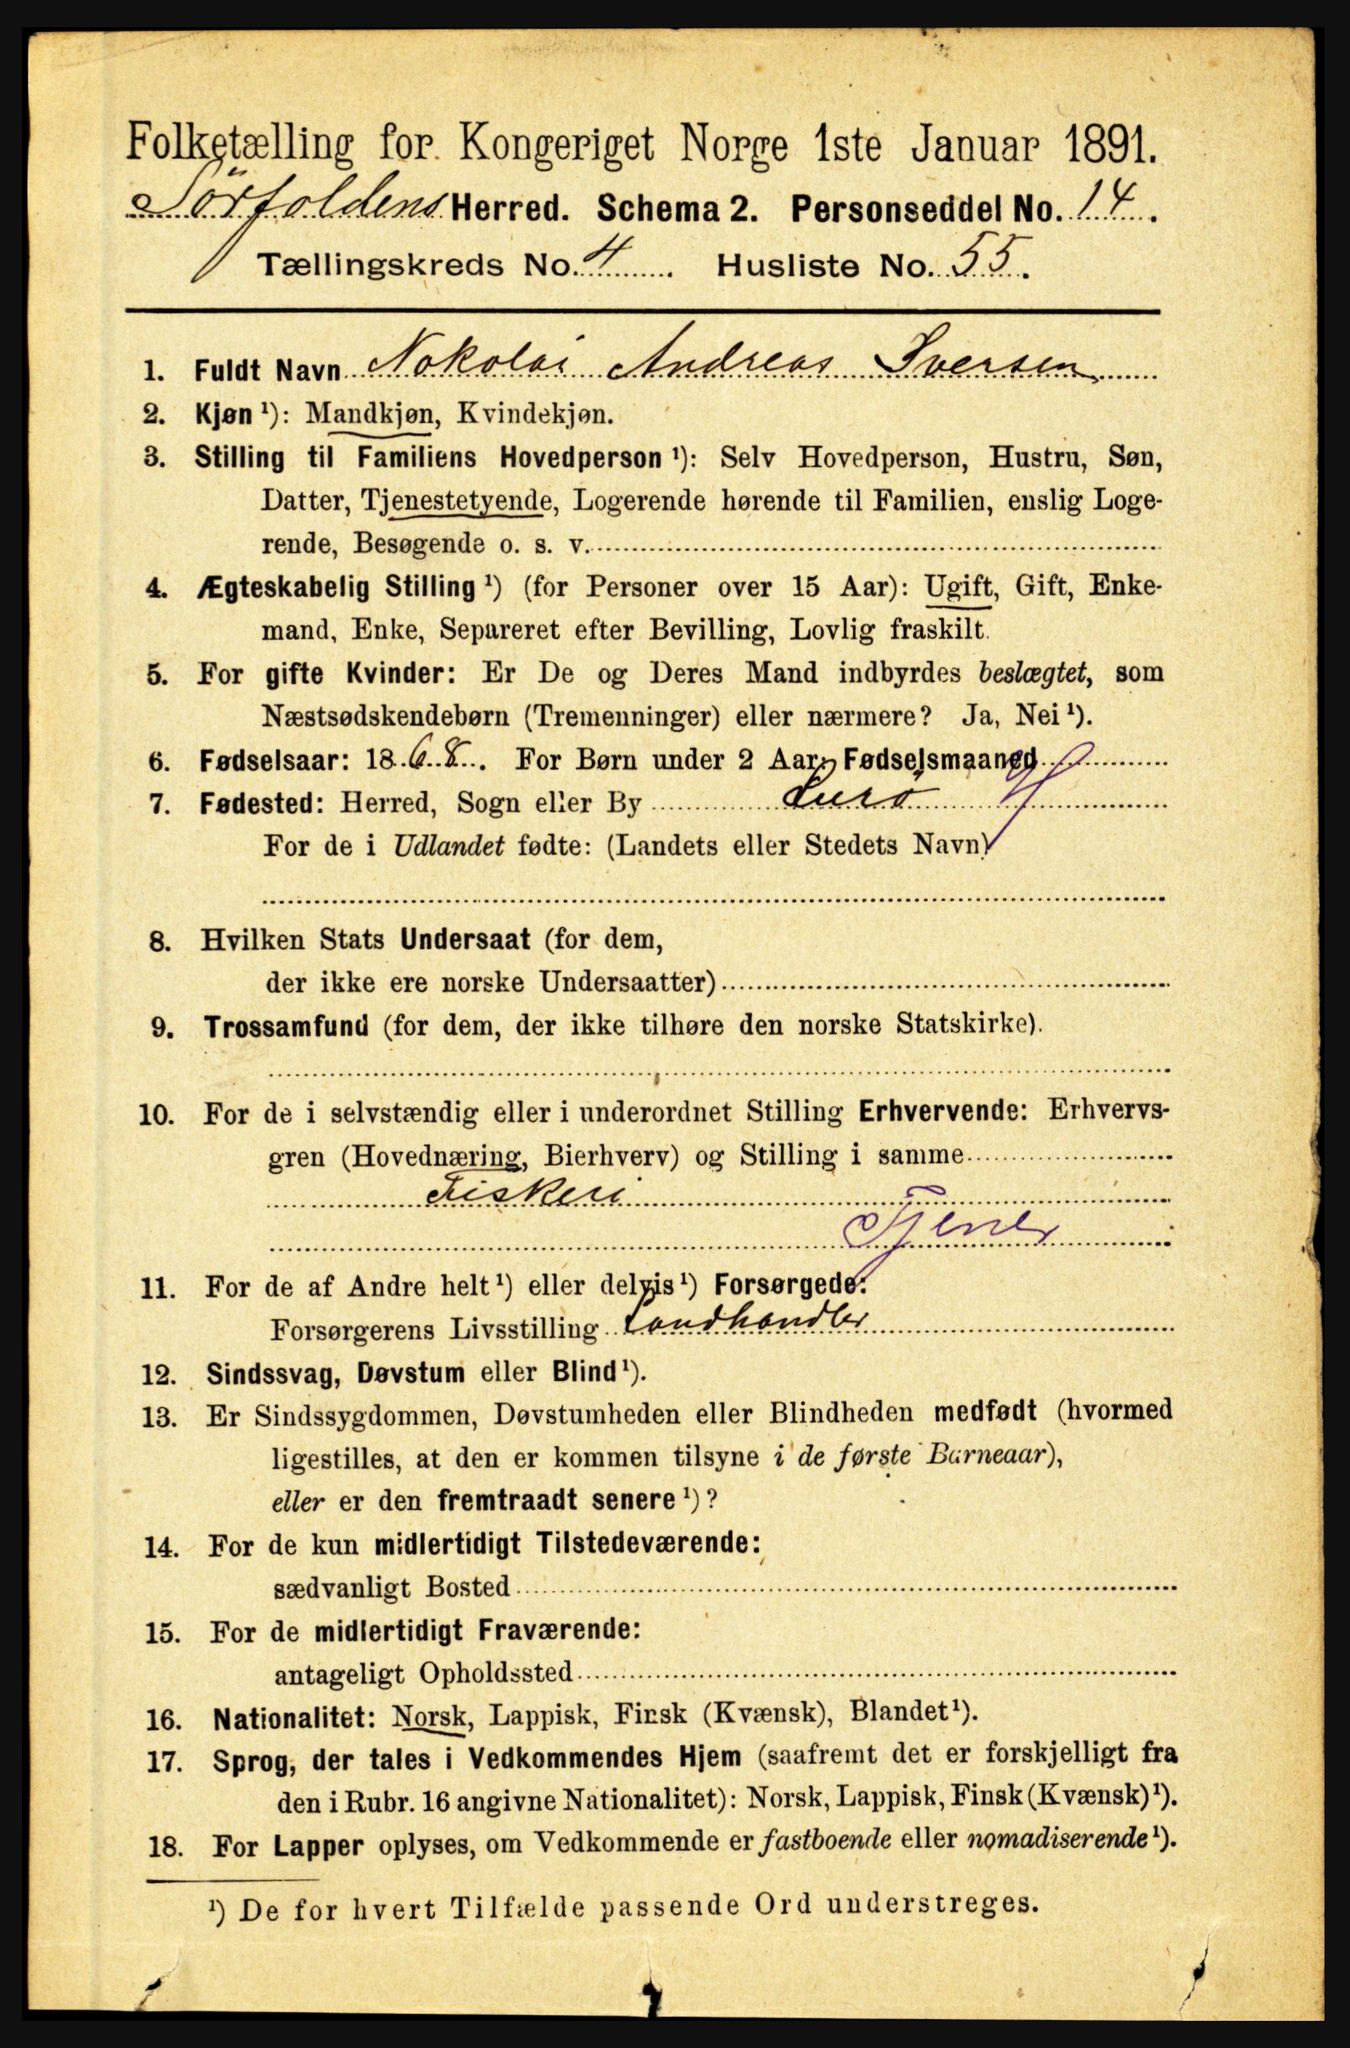 Folketælling for Kongeriget Norge 1ste Januar 1891.
Sørfoldens Herred. Schema 2. Personseddel No. 14.
Tællingskreds No. 4. Husliste No. 55.
1. Fuldt Navn Nokolai Andreas Iversen
2. Kjøn ¹): Mandkjøn, Kvindekjøn.
3. Stilling til Familiens Hovedperson ¹): Selv Hovedperson, Hustru, Søn,
Datter, Tjenestetyende, Logerende hørende til Familien, enslig Loge-
rende, Besøgende o. s. v.
4. Ægteskabelig Stilling ¹) (for Personer over 15 Aar): Ugift, Gift, Enke-
mand, Enke, Separeret efter Bevilling, Lovlig fraskilt.
5. For gifte Kvinder: Er De og Deres Mand indbyrdes beslægtet, som
Næstsødskendebørn (Tremenninger) eller nærmere? Ja, Nei ¹).
6. Fødselsaar: 1868. For Børn under 2 Aar, Fødselsmaaned
7. Fødested: Herred, Sogn eller By Lurø
For de i Udlandet fødte: (Landets eller Stedets Navn)
8. Hvilken Stats Undersaat (for dem,
der ikke ere norske Undersaatter)
9. Trossamfund (for dem, der ikke tilhøre den norske Statskirke).
10. For de i selvstændig eller i underordnet Stilling Erhvervende: Erhvervs-
gren (Hovednæring, Bierhverv) og Stilling i samme
Fiskeri
Tjener
11. For de af Andre helt ¹) eller delvis ¹) Forsørgede:
Forsørgerens Livsstilling Landhandler
12. Sindssvag, Døvstum eller Blind ¹).
13. Er Sindssygdommen, Døvstumheden eller Blindheden medfødt (hvormed
ligestilles, at den er kommen tilsyne i de første Barneaar),
eller er den fremtraadt senere ¹)?
14. For de kun midlertidigt Tilstedeværende:
sædvanligt Bosted
15. For de midlertidigt Fraværende:
antageligt Opholdssted
16. Nationalitet: Norsk, Lappisk, Finsk (Kvænsk), Blandet ¹).
17. Sprog, der tales i Vedkommendes Hjem (saafremt det er forskjelligt fra
den i Rubr. 16 angivne Nationalitet): Norsk, Lappisk, Finsk (Kvænsk) ¹).
18. For Lapper oplyses, om Vedkommende er fastboende eller nomadiserende ¹).
¹) De for hvert Tilfælde passende Ord understreges.